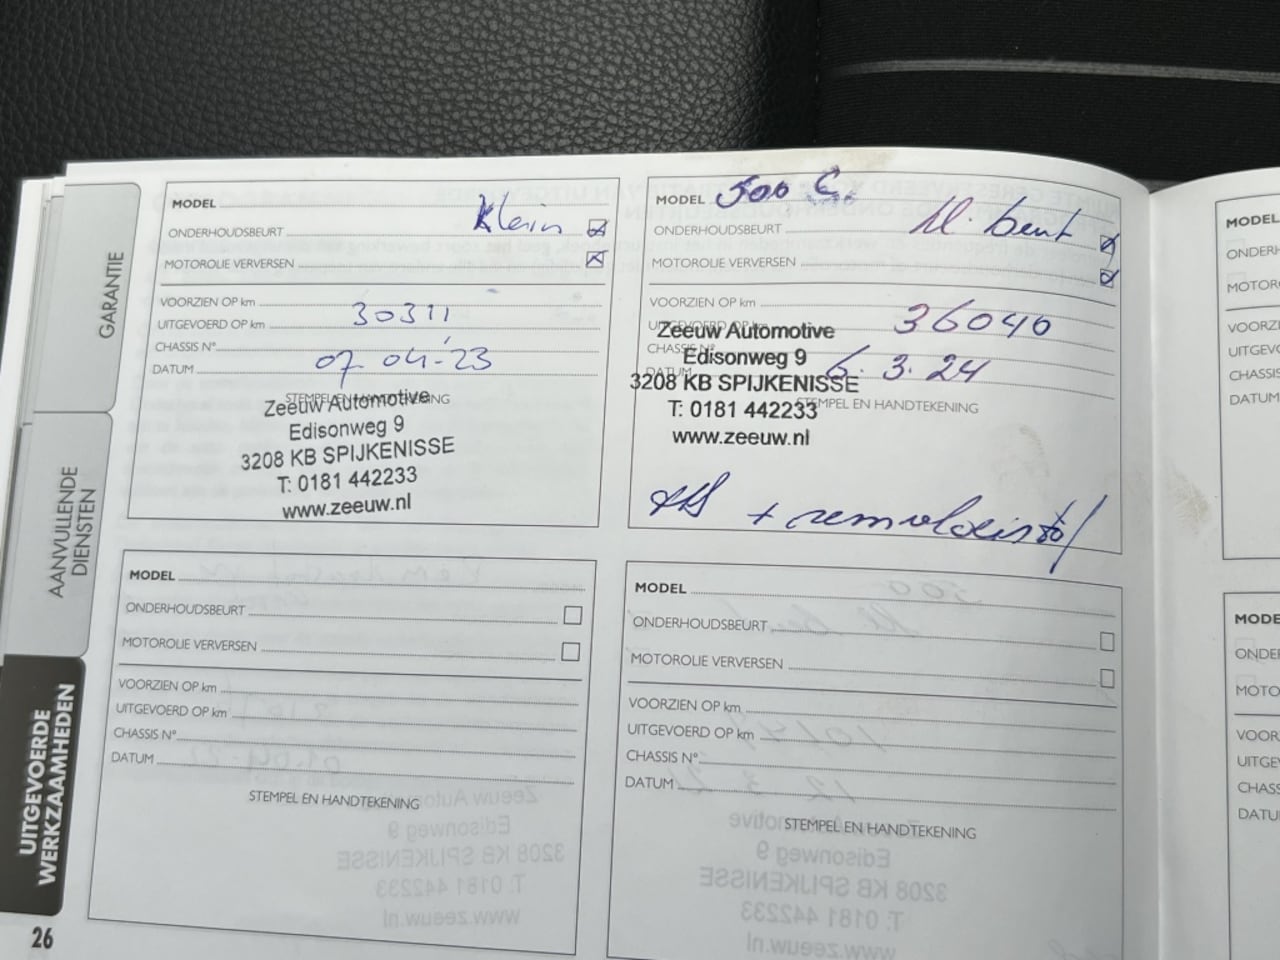 GARANTIE
AANVULLENDE
DIENSTEN
UITGEVOERDE
WERKZAAMHEDEN
26
MODEL
ONDERHOUDSBEURT Klein
MOTOROLIE VERVERSEN
VOORZIEN OP km
UITGEVOERD OP km 30311
CHASSIS N°
DATUM 07-04-'23
STEMPEL EN HANDTEKENING
Zeeuw Automotive
Edisonweg 9
3208 KB SPIJKENISSE
T: 0181 442233
www.zeeuw.nl
MODEL 500 C.
ONDERHOUDSBEURT kl. beurt
MOTOROLIE VERVERSEN
VOORZIEN OP km
UITGEVOERD OP km 36040
CHASSIS N°
DATUM 6.3.24
STEMPEL EN HANDTEKENING
Zeeuw Automotive
Edisonweg 9
3208 KB SPIJKENISSE
T: 0181 442233
www.zeeuw.nl
+ remvloeistof
MODEL
ONDERHOUDSBEURT
MOTOROLIE VERVERSEN
VOORZIEN OP km
UITGEVOERD OP km
CHASSIS N°
DATUM
STEMPEL EN HANDTEKENING
MODEL
ONDERHOUDSBEURT
MOTOROLIE VERVERSEN
VOORZIEN OP km
UITGEVOERD OP km
CHASSIS N°
DATUM
STEMPEL EN HANDTEKENING
MODEL
ONDERH
MOTOR
VOORZI
UITGEV
CHASSIS
DATUM
MODE
ONDE
MOTO
VOOR
UITGE
CHASS
DATU